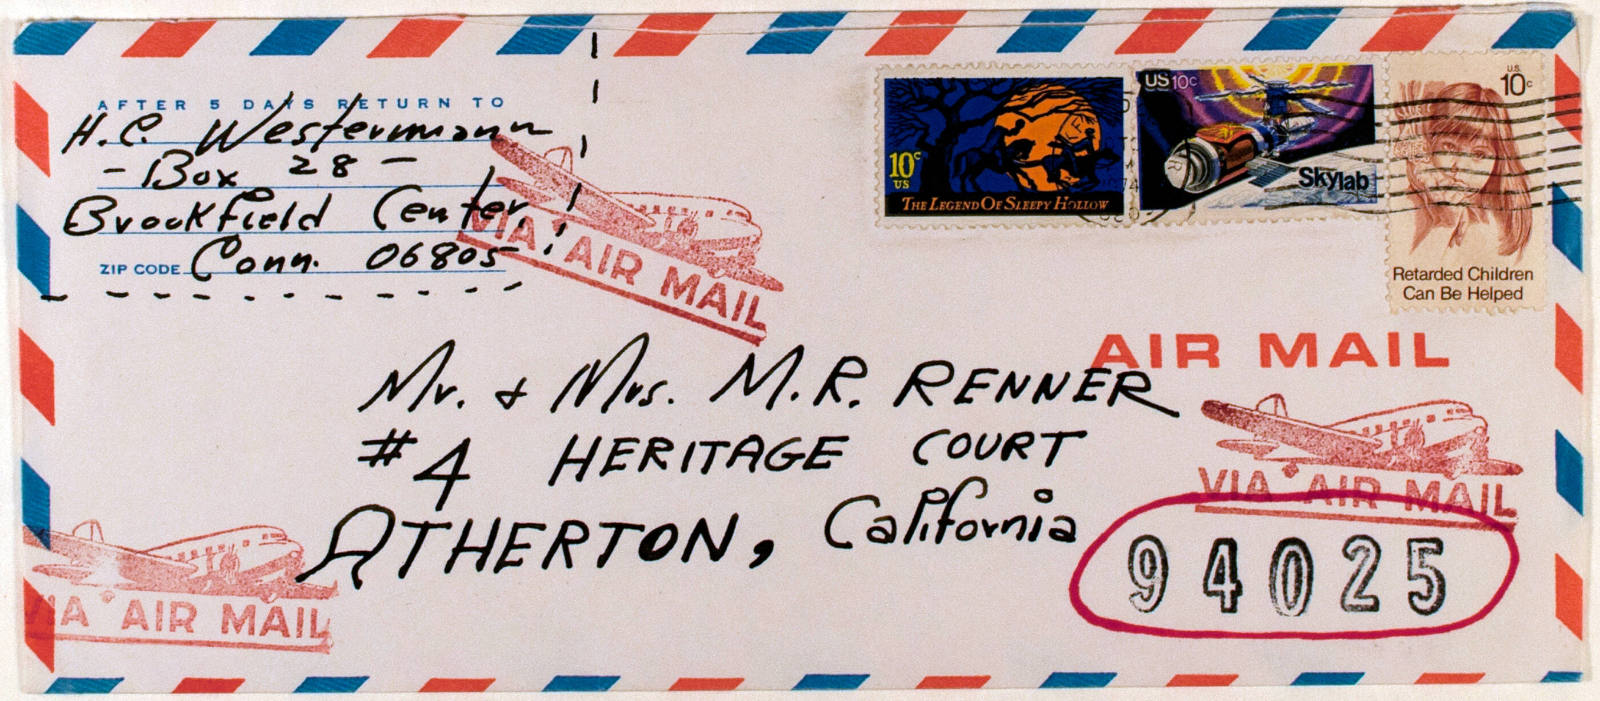 AFTER 5 DAYS RETURN TO
H.C. Westermann
- Box 28 -
Brookfield Center,
ZIP CODE Conn. 06805
VIA AIR MAIL
10c US
THE LEGEND OF SLEEPY HOLLOW
US 10c
Skylab
U.S. 10c
Retarded Children
Can Be Helped
AIR MAIL
Mr. & Mrs. M.R. RENNER
#4 HERITAGE COURT
ATHERTON, California
VIA AIR MAIL
94025
VIA AIR MAIL